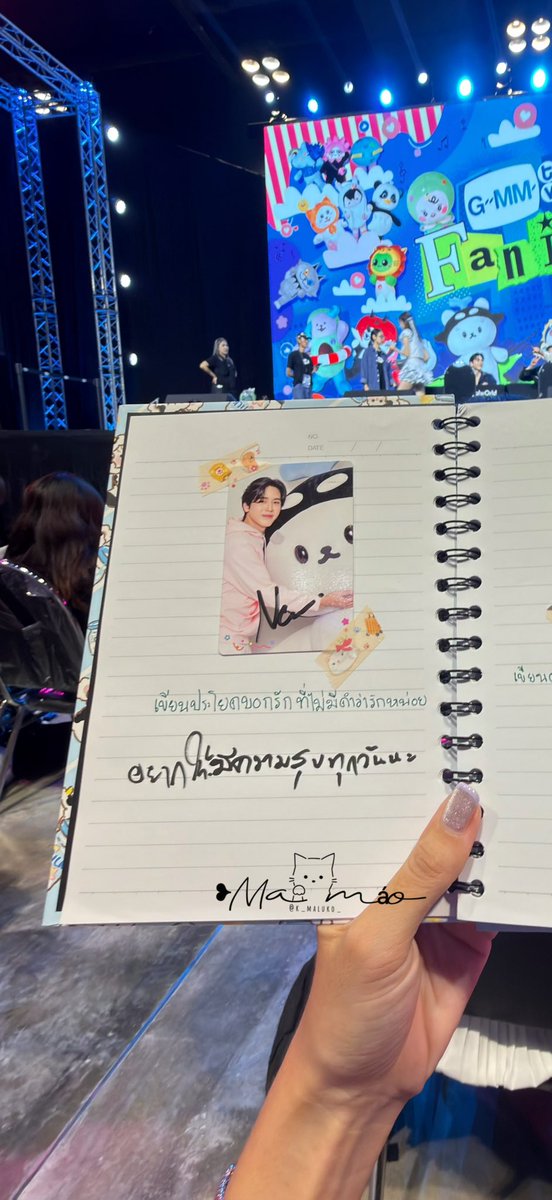 G-MM
Fan
NO.
DATE / /
Nani
เขียนประโยคบอกรัก ที่ไม่มีคำว่ารักหน่อย
เขียน
อยากให้มีความสุขทุกวันนะ
Mao máo
@K_MALUKO_